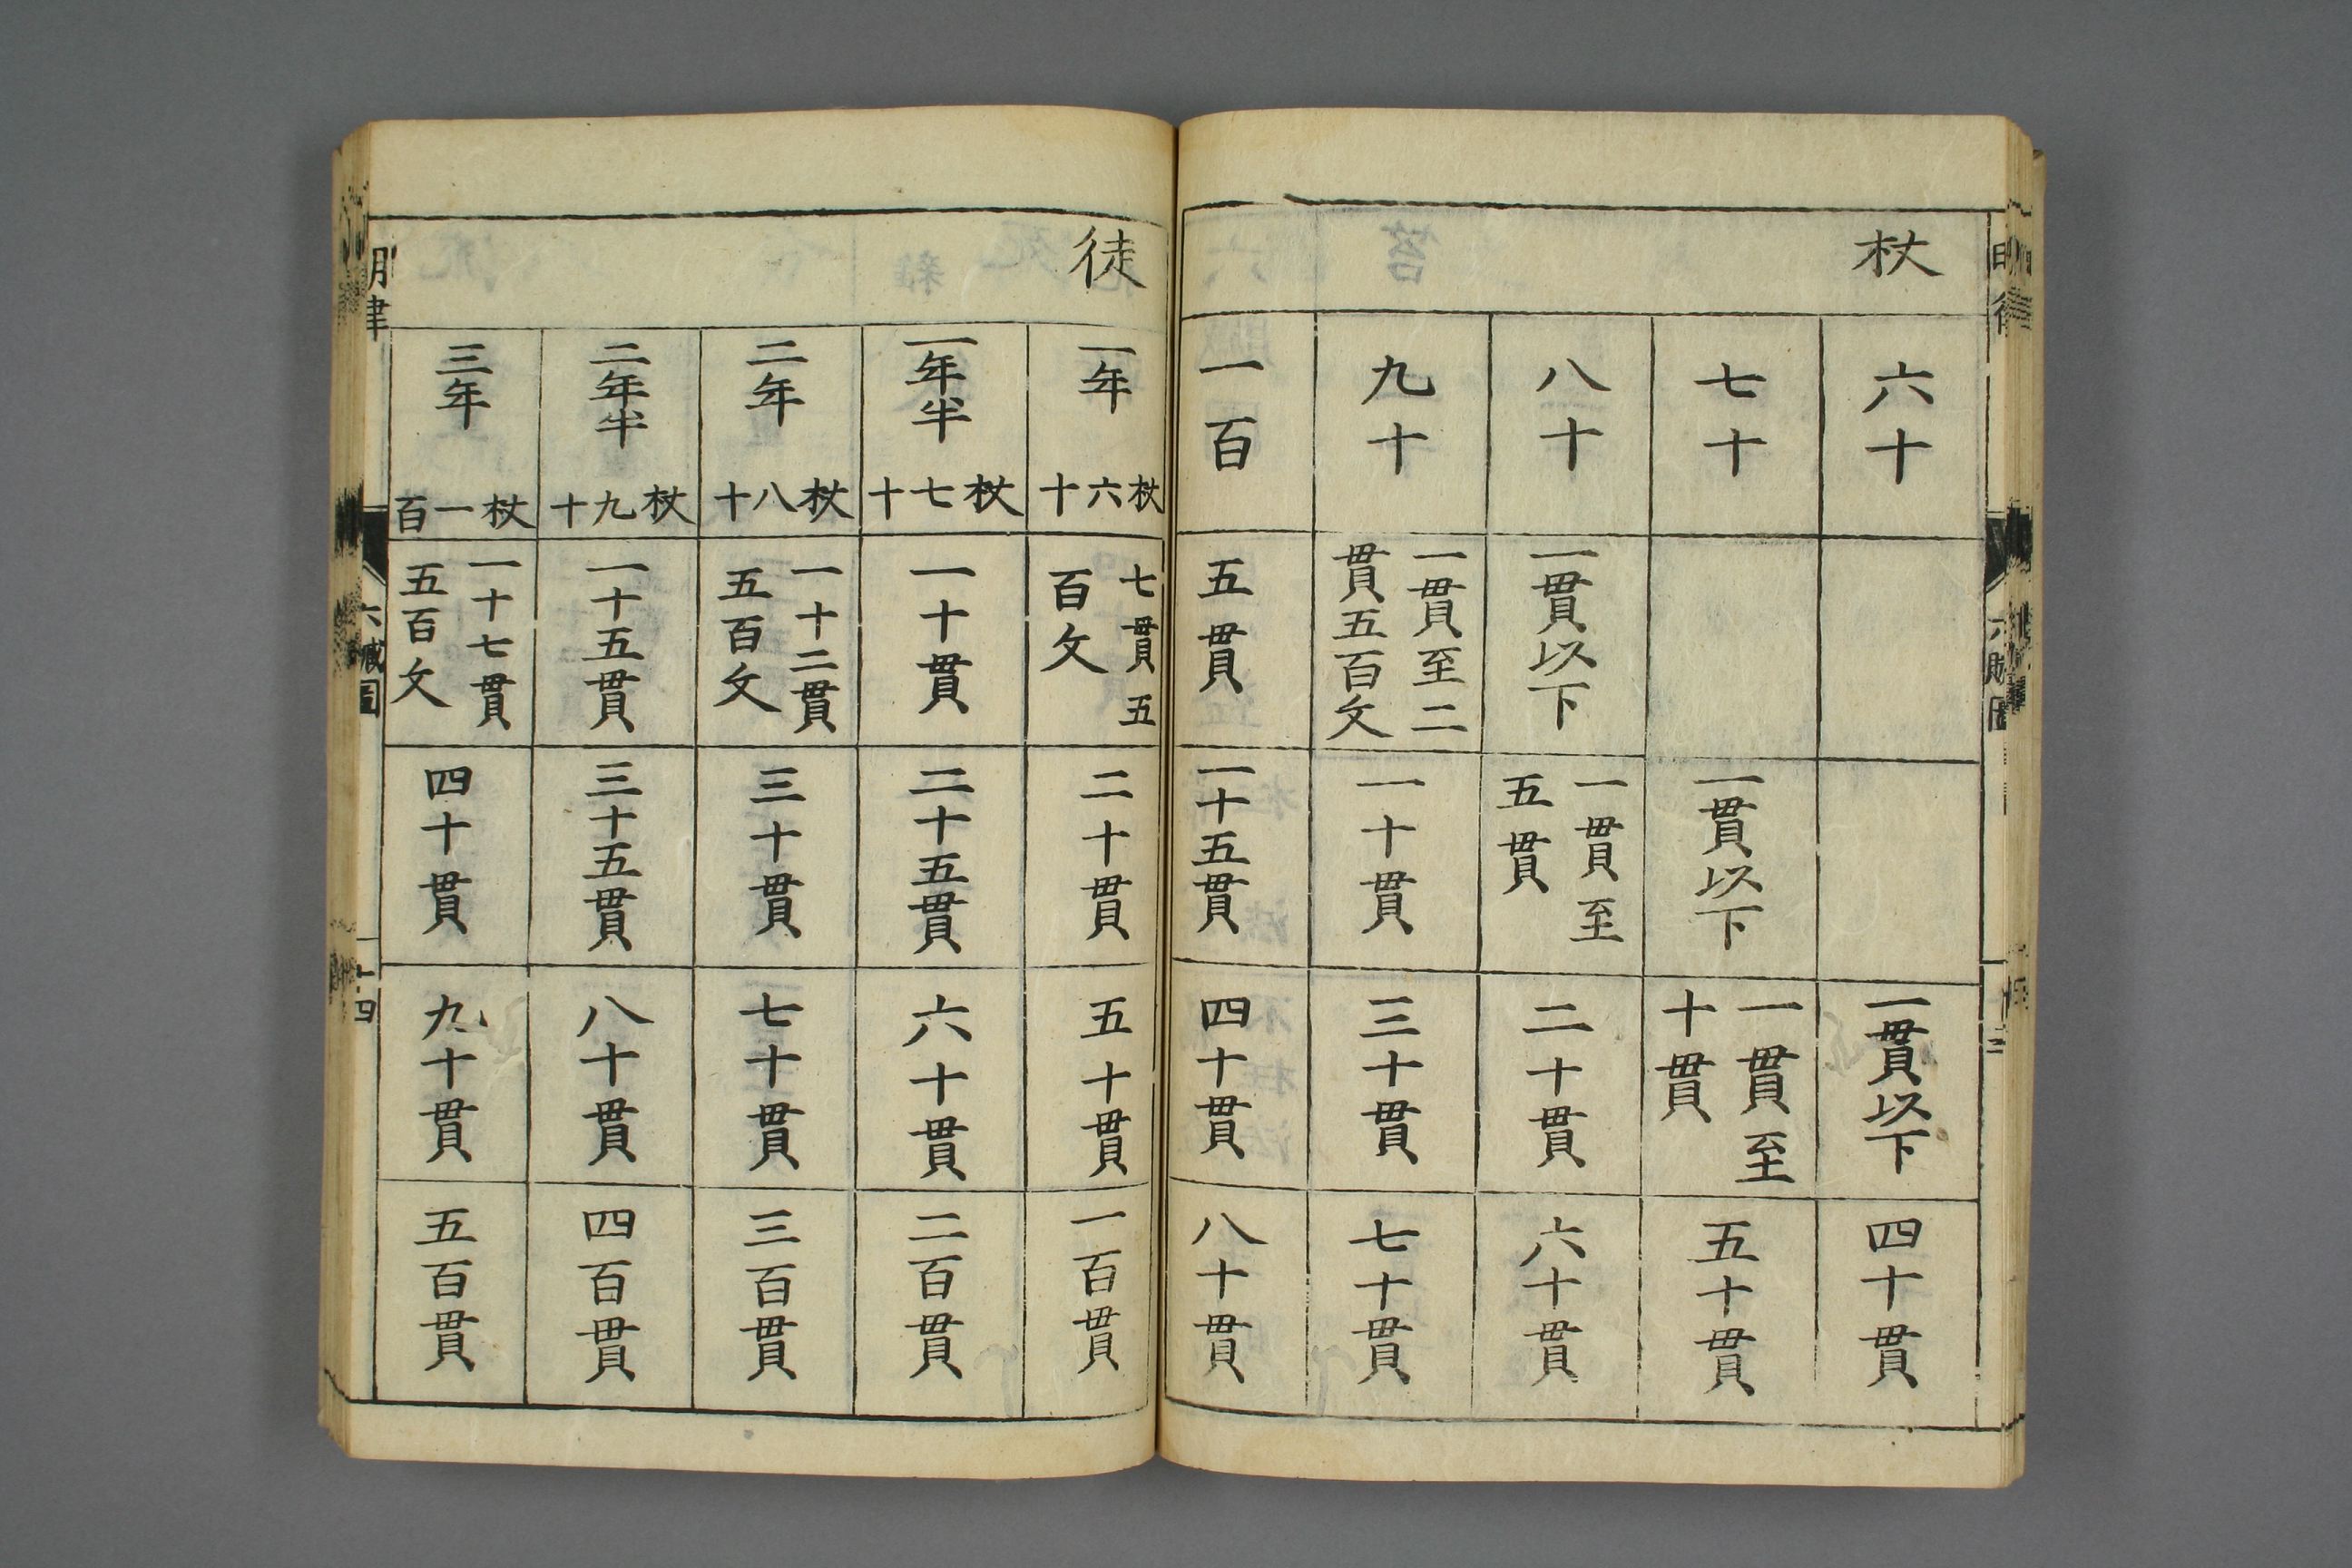 杖
六十
一貫以下
四十貫
七十
一貫以下
一貫至
十貫
五十貫
八十
一貫以下
一貫至
五貫
二十貫
六十貫
九十
一貫至二
貫五百文
一十貫
三十貫
七十貫
一百
五貫
一十五貫
四十貫
八十貫
徒
一年
杖六十
七貫五
百文
二十貫
五十貫
一百貫
一年半
杖七十
一十貫
二十五貫
六十貫
二百貫
二年
杖八十
一十二貫
五百文
三十貫
七十貫
三百貫
二年半
杖九十
一十五貫
三十五貫
八十貫
四百貫
三年
杖一百
一十七貫
五百文
四十貫
九十貫
五百貫